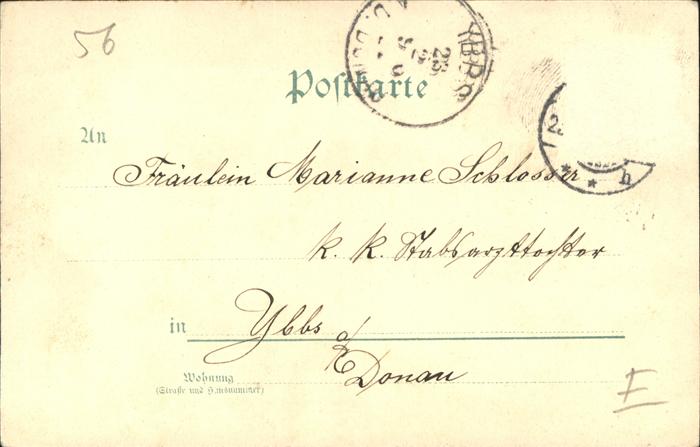 56
YBBS
Postkarte
2
h
An
Fräulein Marianne Schlosser
k. k. Stabsarzttochter
in Ybbs a/
Donau
Wohnung
(Straße und Hausnummer)
E